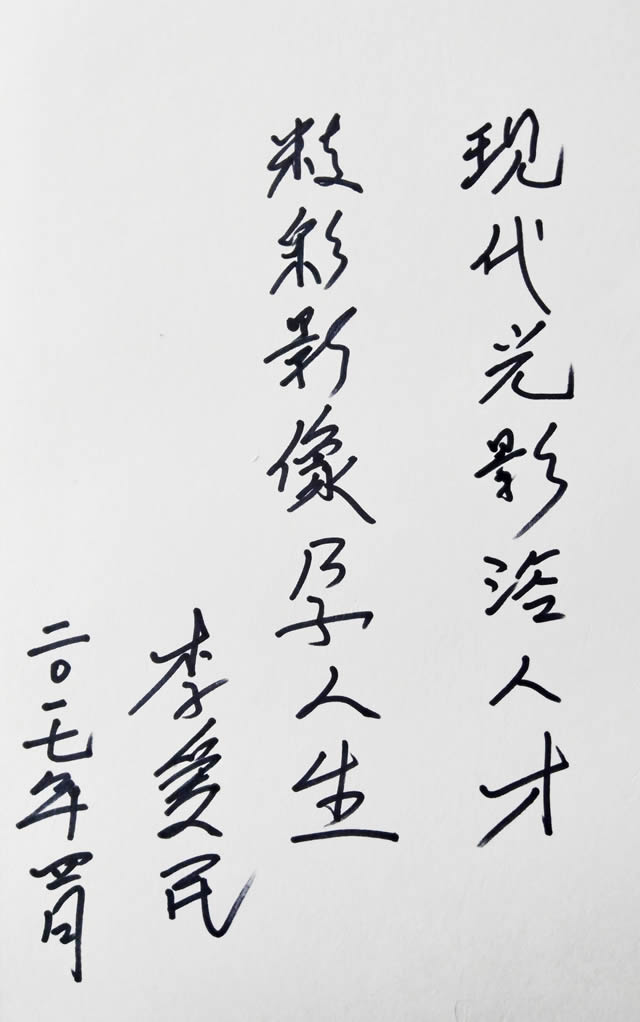 现代光影人才
精彩影像孕人生
李爱民
二〇一七年四月